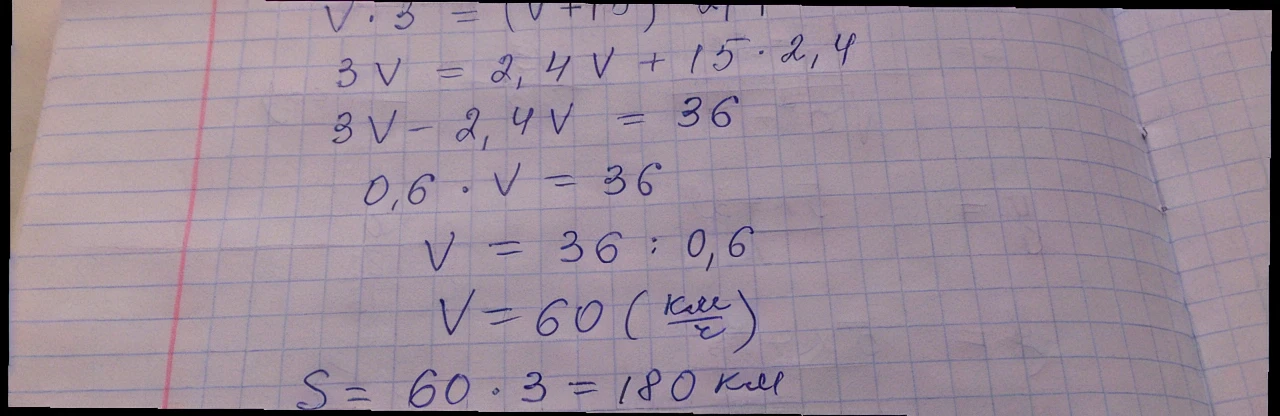 V · 3 = (V + 15) · 2,4
3V = 2,4V + 15 · 2,4
3V - 2,4V = 36
0,6 · V = 36
V = 36 : 0,6
V = 60 (км/ч)
S = 60 · 3 = 180 км